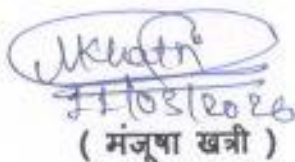 MKhatri
11/03/2026
( मंजूषा खत्री )